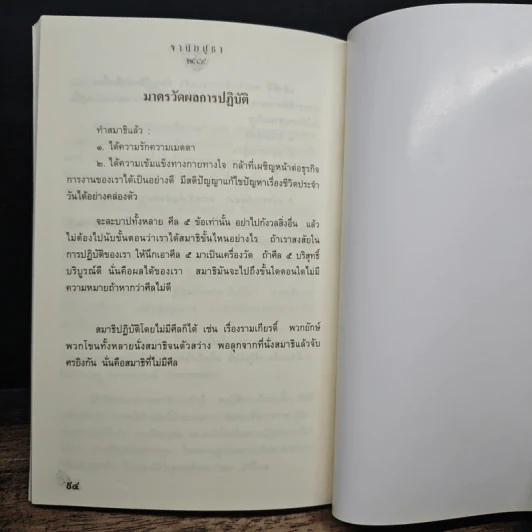 จาริยบูชา
๒๔๔๙
มาตรวัดผลการปฏิบัติ
ทำสมาธิแล้ว :
๑. ได้ความรักความเมตตา
๒. ได้ความเข้มแข็งทางกายทางใจ กล้าที่เผชิญหน้าต่อธุรกิจ
การงานของเราได้เป็นอย่างดี มีสติปัญญาแก้ไขปัญหาเรื่องชีวิตประจำ
วันได้อย่างคล่องตัว
จะละบาปทั้งหลาย ศีล ๕ ข้อเท่านั้น อย่าไปกังวลสิ่งอื่น แล้ว
ไม่ต้องไปนับขั้นตอนว่าเราได้สมาธิขั้นไหนอย่างไร ถ้าเราสงสัยใน
การปฏิบัติของเรา ให้นึกเอาศีล ๕ มาเป็นเครื่องวัด ถ้าศีล ๕ บริสุทธิ์
บริบูรณ์ดี นั่นคือผลได้ของเรา สมาธิมันจะไปถึงขั้นใดตอนใดไม่มี
ความหมายถ้าหากว่าศีลไม่ดี
สมาธิปฏิบัติโดยไม่มีศีลก็ได้ เช่น เรื่องรามเกียรติ์ พวกยักษ์
พวกโขนทั้งหลายนั่งสมาธิจนตัวสว่าง พอลุกจากที่นั่งสมาธิแล้วจับ
ศรยิงกัน นั่นคือสมาธิที่ไม่มีศีล
๕๔